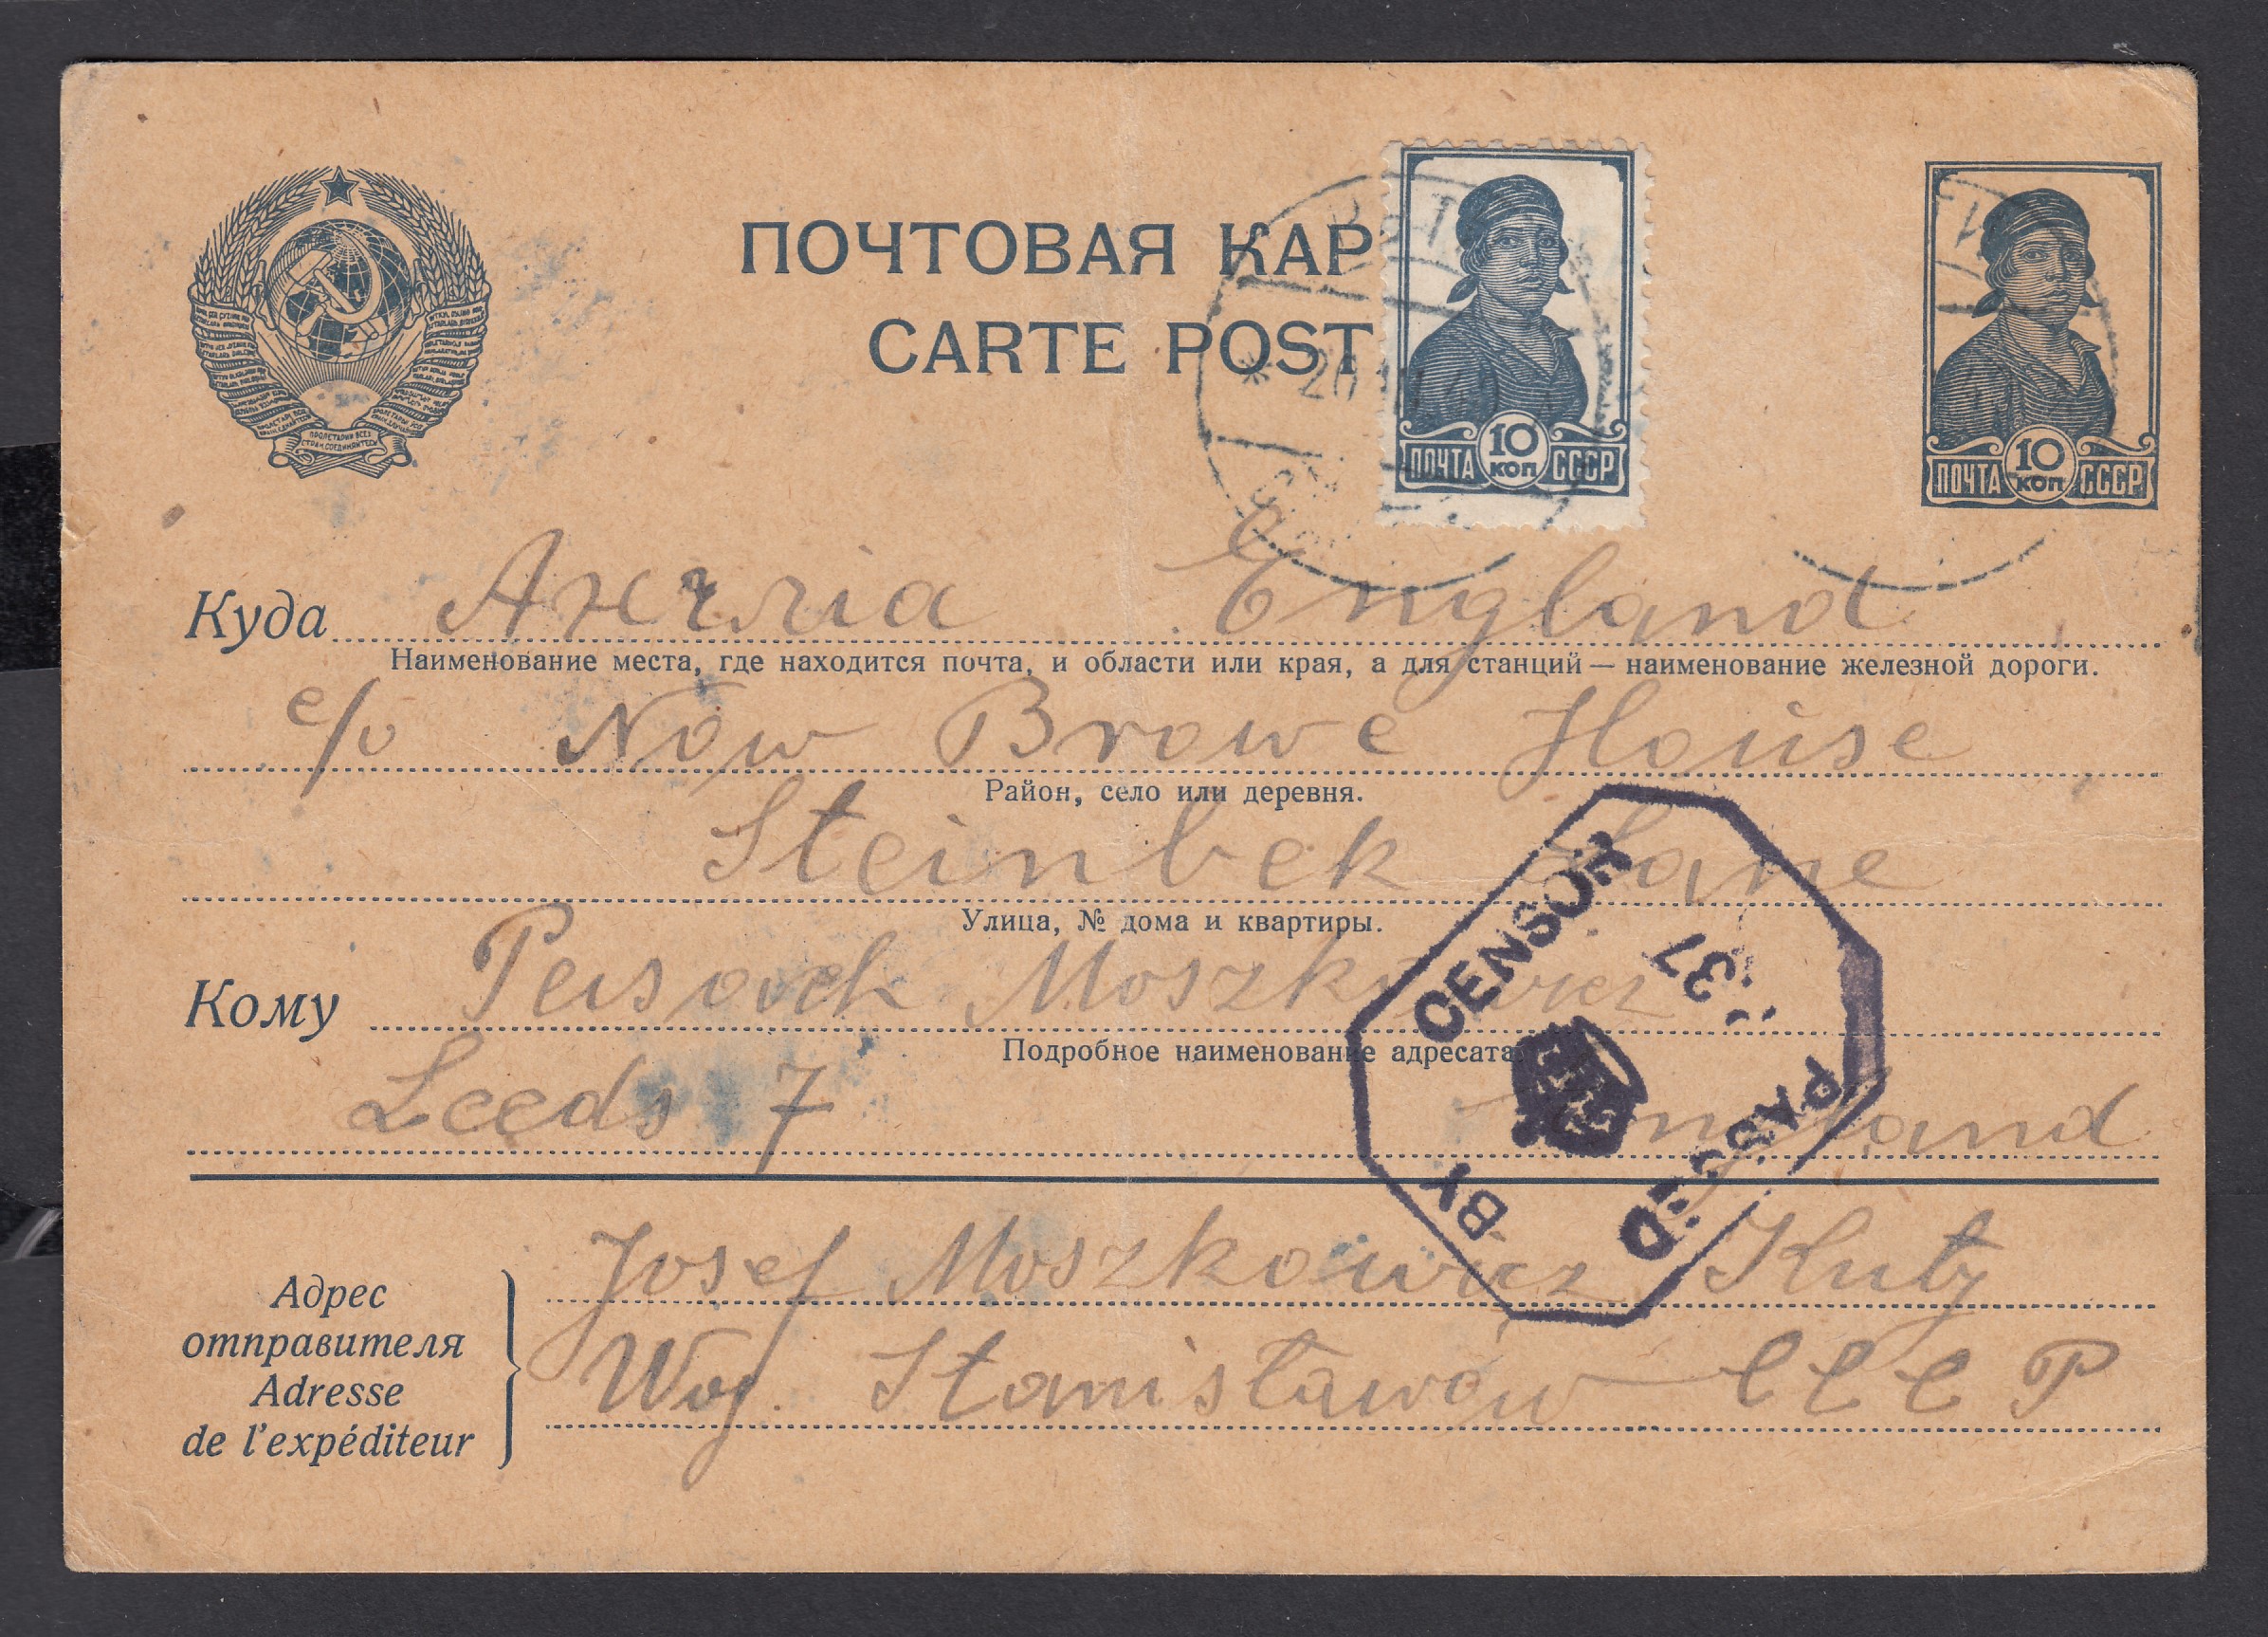 ПОЧТОВАЯ КАР
CARTE POST
10
КОП
ПОЧТА СССР
10
КОП
ПОЧТА СССР
ПРОЛЕТАРИИ ВСЕХ
СТРАН, СОЕДИНЯЙТЕСЬ
Куда Англіа England
Наименование места, где находится почта, и области или края, а для станций — наименование железной дороги.
c/o Now Browe House
Район, село или деревня.
Steinbek Lane
Улица, № дома и квартиры.
Кому Peisach Moszkowicz
Подробное наименование адресата
Leeds 7 England
PASSED
BY CENSOR
37
Адрес
отправителя
Adresse
de l'expéditeur
Josef Moszkowicz Kuty
Woj. Stanisławów СССР